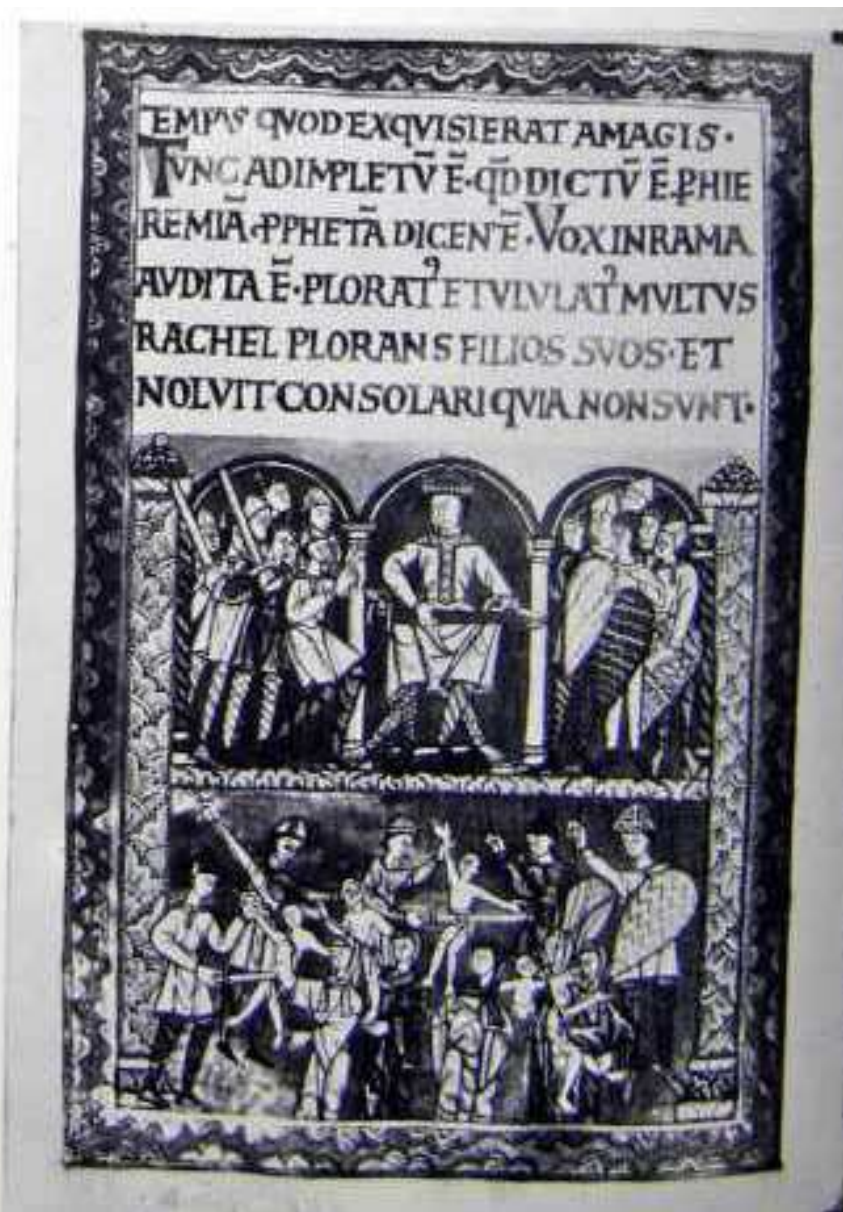 TEMPVS QVOD EXQVISIERAT A MAGIS·
TVNC ADIMPLETV̄ Ē·QD̄ DICTV̄ Ē ꝑ HIE
REMIĀ PPHETĀ DICENTĒ·VOX IN RAMA
AVDITA Ē·PLORATꝰ ET VLVLATꝰ MVLTVS
RACHEL PLORANS FILIOS SVOS·ET
NOLVIT CONSOLARI QVIA NON SVNT·